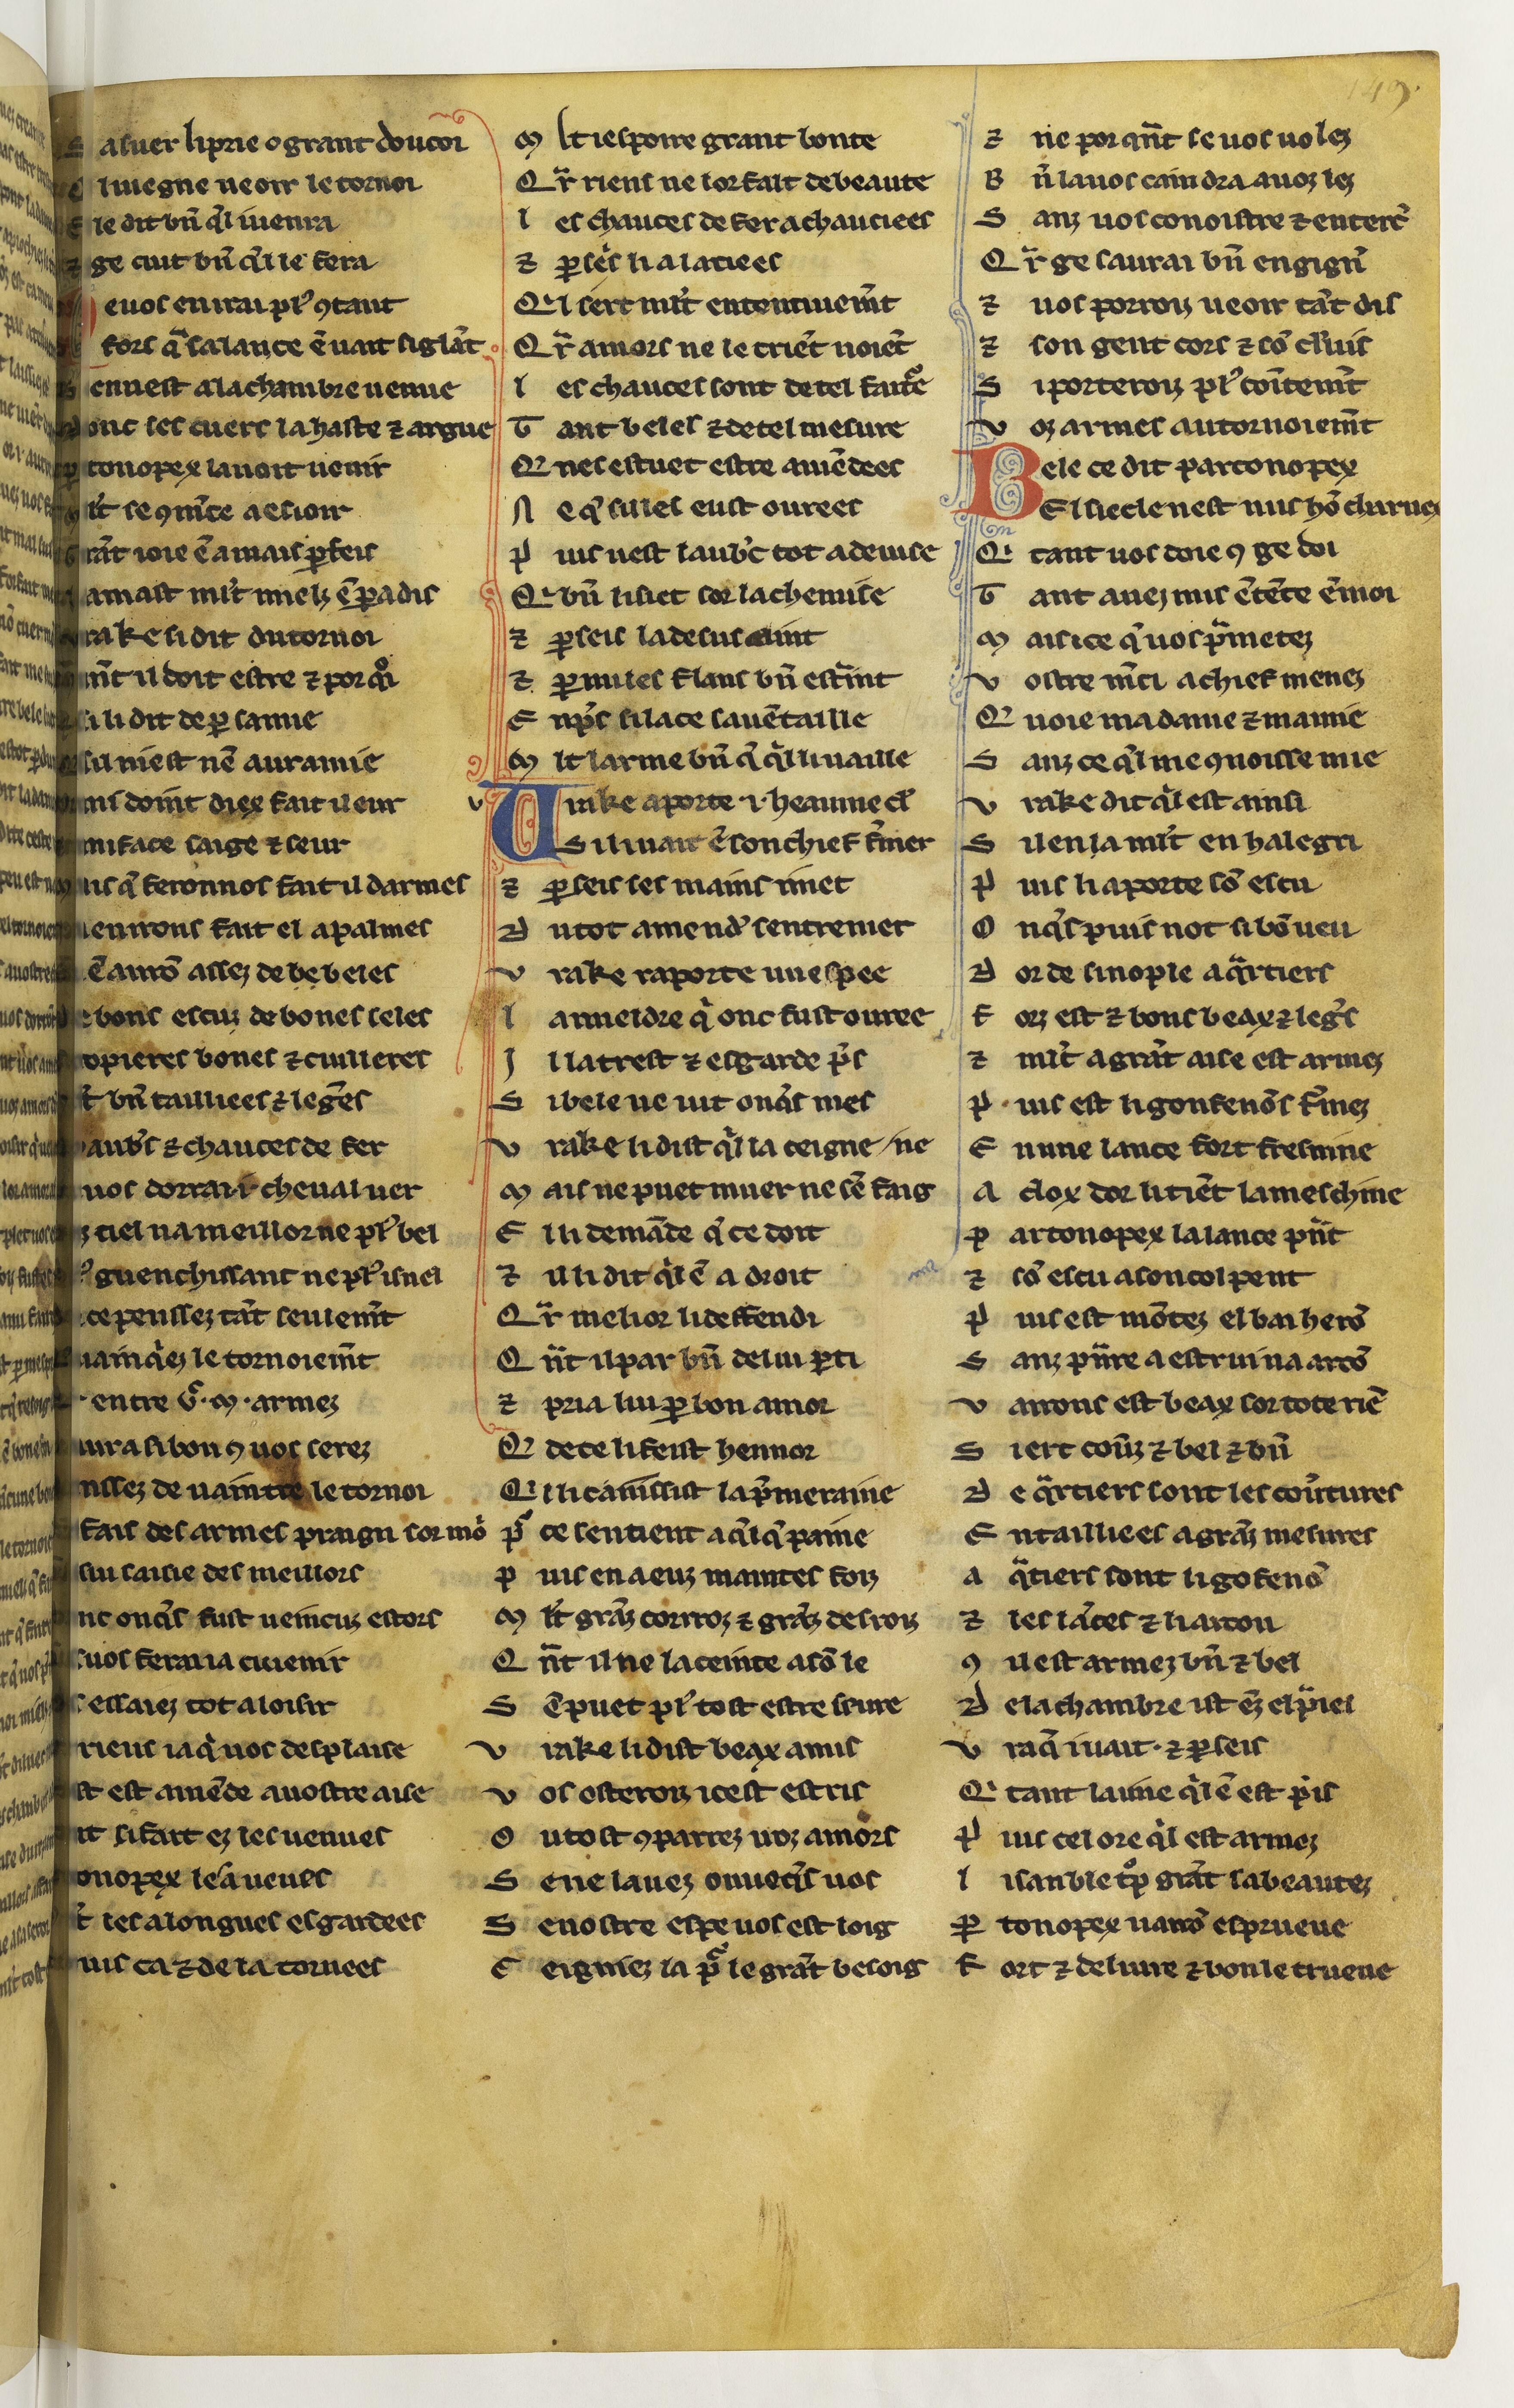 S aluer li prie o grant doucor
E l uiegne ueoir le tornoi
E le dit bn̄ ql̓ i uenra
⁊ ge cuit bn̄ qͥl le fera
J e uos en irai plꝰ ꝯtant
fors q̄ sa lance ē uait siglāt
S en uest a la chambre uenue
Donc ses cuers la haste ⁊ argue
ꝑtonopex la uoit uenir
lt̓ se ꝯm̄ce a esioir
rāt ioie ē a mais ꝑ feis
amast ml̓t mielz ē ꝑadis
rake li dit du tornoi
m̄t il doit estre ⁊ por qͦi
si li dit de ꝑ samie
sil niest nē aura mie
ni doint diex fait il eur
mi face saige ⁊ seur
uis q̓ feron nos fait il darmes
uenrons fait el a palmes
ē aurō assez de be beles
e bons escuz de bones seles
opieres bones ⁊ cuuieres
t̓ bn̄ tailliees ⁊ leg̓es
aub̓s ⁊ chauces de fer
uos dorrai .i. cheual uer
z ciel na meillor ne plꝰ bel
guenchissant ne plꝰ isnel
ce penssez tāt seulem̄t
uainq̓ez le tornoiem̄t
entre .v.ͨ .M. armez
iura si bon ꝯ uos serez
nssez de uaintre le tornoi
fais des armes praign sor mō
sui saisie des meillors
nc onq̄s fust ueincuz estors
uos ferai ia cuuenir
essaiez tot a loisir
riens ia q̓ uos desplaise
st est amēde a uostre aise
it si fait ez les uenues
onopex les a ueues
t̓ les a longues esgardees
uis ca ⁊ de la tornees
M lt iespoire grant bonte
Qr̄ riens ne lor falt de beaute
L es chauces de fer a chauciees
⁊ ꝑseis li a laciees
Qͥl sert ml̓t ententiuem̄t
Qr̄ amors ne le criēt noiēt
L es chauces sont de tel faiture
T ant beles ⁊ de tel mesure
Qͥ nes estuet estre amēdees
N e q̓ siles eust ourees
P uis uest laub̓c tot a deuise
Qͥ bn̄ li siet sor la chemise
⁊ ꝑseis la desus aint
⁊ ꝑ mi les flans bn̄ estrint
E np̓s si lace sa uētaille
M lt larme bn̄ q̓ qͥl li uaille
U rake aporte .i. heaume cl̓
Si li uait ē son chief fm̄er
⁊ ꝑseis ses mains i met
D u tot amend̓ sentremet
V rake raporte une spee
L a meidre qͥ onc fust ouree
J l la trest ⁊ esgarde p̓s
S i bele ne uit onq̄s mes
V rake li dist qͥl la ceigne
M ais ne puet muer ne sē faig/ne
E l li demāde q̓ ce doit
⁊ il li dit qͥl ē a droit
Qr̄ melior li deffendi
Q n̄t il par bn̄ de lui ꝑti
⁊ pria lui ꝑ bon amor
Qͥ de ce li feist hennor
Qͥl li cainssist la p̓meraine
P̓ ce sentient a q̓l q̓ paine
P uis en a euz maintes foiz
M lt̓ grāz corroz ⁊ grāz desroiz
Q n̄t il ne la ceinte a sō le
S ē puet plꝰ tost estre seure
V rake li dist beax amis
V os osteroiz icest estris
O u tost ꝯparrez uoz amors
S e ne lauez onuecq̄s uos
S e uostre espe uos est loig
C eigniez la p̓ le grāt besoig
⁊ ne por qn̄t se uos uolez
B n̄ la uos caindra a uoz lez
S anz uos conoistre ⁊ enterc̓
Qr̄ ge saurai bn̄ engign̓
⁊ uos porroiz ueoir tāt dis
⁊ son gent cors ⁊ sō cler uis
S i porteroiz plꝰ cointem̄t
V oz armes au tornoiem̄t
B ele ce dit partonopex
El siecle nest nus hō charnex
Qͥ tant uos doie ꝯ ge doi
T ant auez mis ētēte ē moi
M ais ice q̓ uos p̄metez
V ostre m̓ci a chief menez
Qͥ uoie ma dame ⁊ mamie
S anz ce q̓l me ꝯnoisse mie
V rake dit qͥl est ainsi
S il en ia ml̓t en halegri
P uis li aporte sō escu
O nq̄s puis not si bō ueu
D or de sinople a q̄rtiers
F orz est ⁊ bons beax ⁊ leg̓s
⁊ ml̓t a grāt aise est armez
P uis est li gonfenōs fm̄ez
E n une lance fort fresnine
A clox dor li tiēt la meschine
P artonopex la lance pn̄t
⁊ sō escu a son col pent
P uis est mōtez el bai herō
S anz pn̄re a estriu na arcō
V airons est beax sor tote riē
S i ert couuz ⁊ bel ⁊ bn̄
D e q̄rtiers sont les cou̓tures
E ntailliees a grāz mesures
A q̄tiers sont li gofenō
⁊ les lāces ⁊ li arcon
ꝯ il est armez bn̄ ⁊ bel
D e la chambre ist ez el p̄iel
V raq̓ i uait ⁊ ꝑseis
Qͥ tant laime q̓l ē est p̓is
P uis cel ore qͥl est armez
L i sanble tͦp grāt sa beautez
ꝑ tonopex uairō esprueue
F ort ⁊ deliure ⁊ bon le trueue